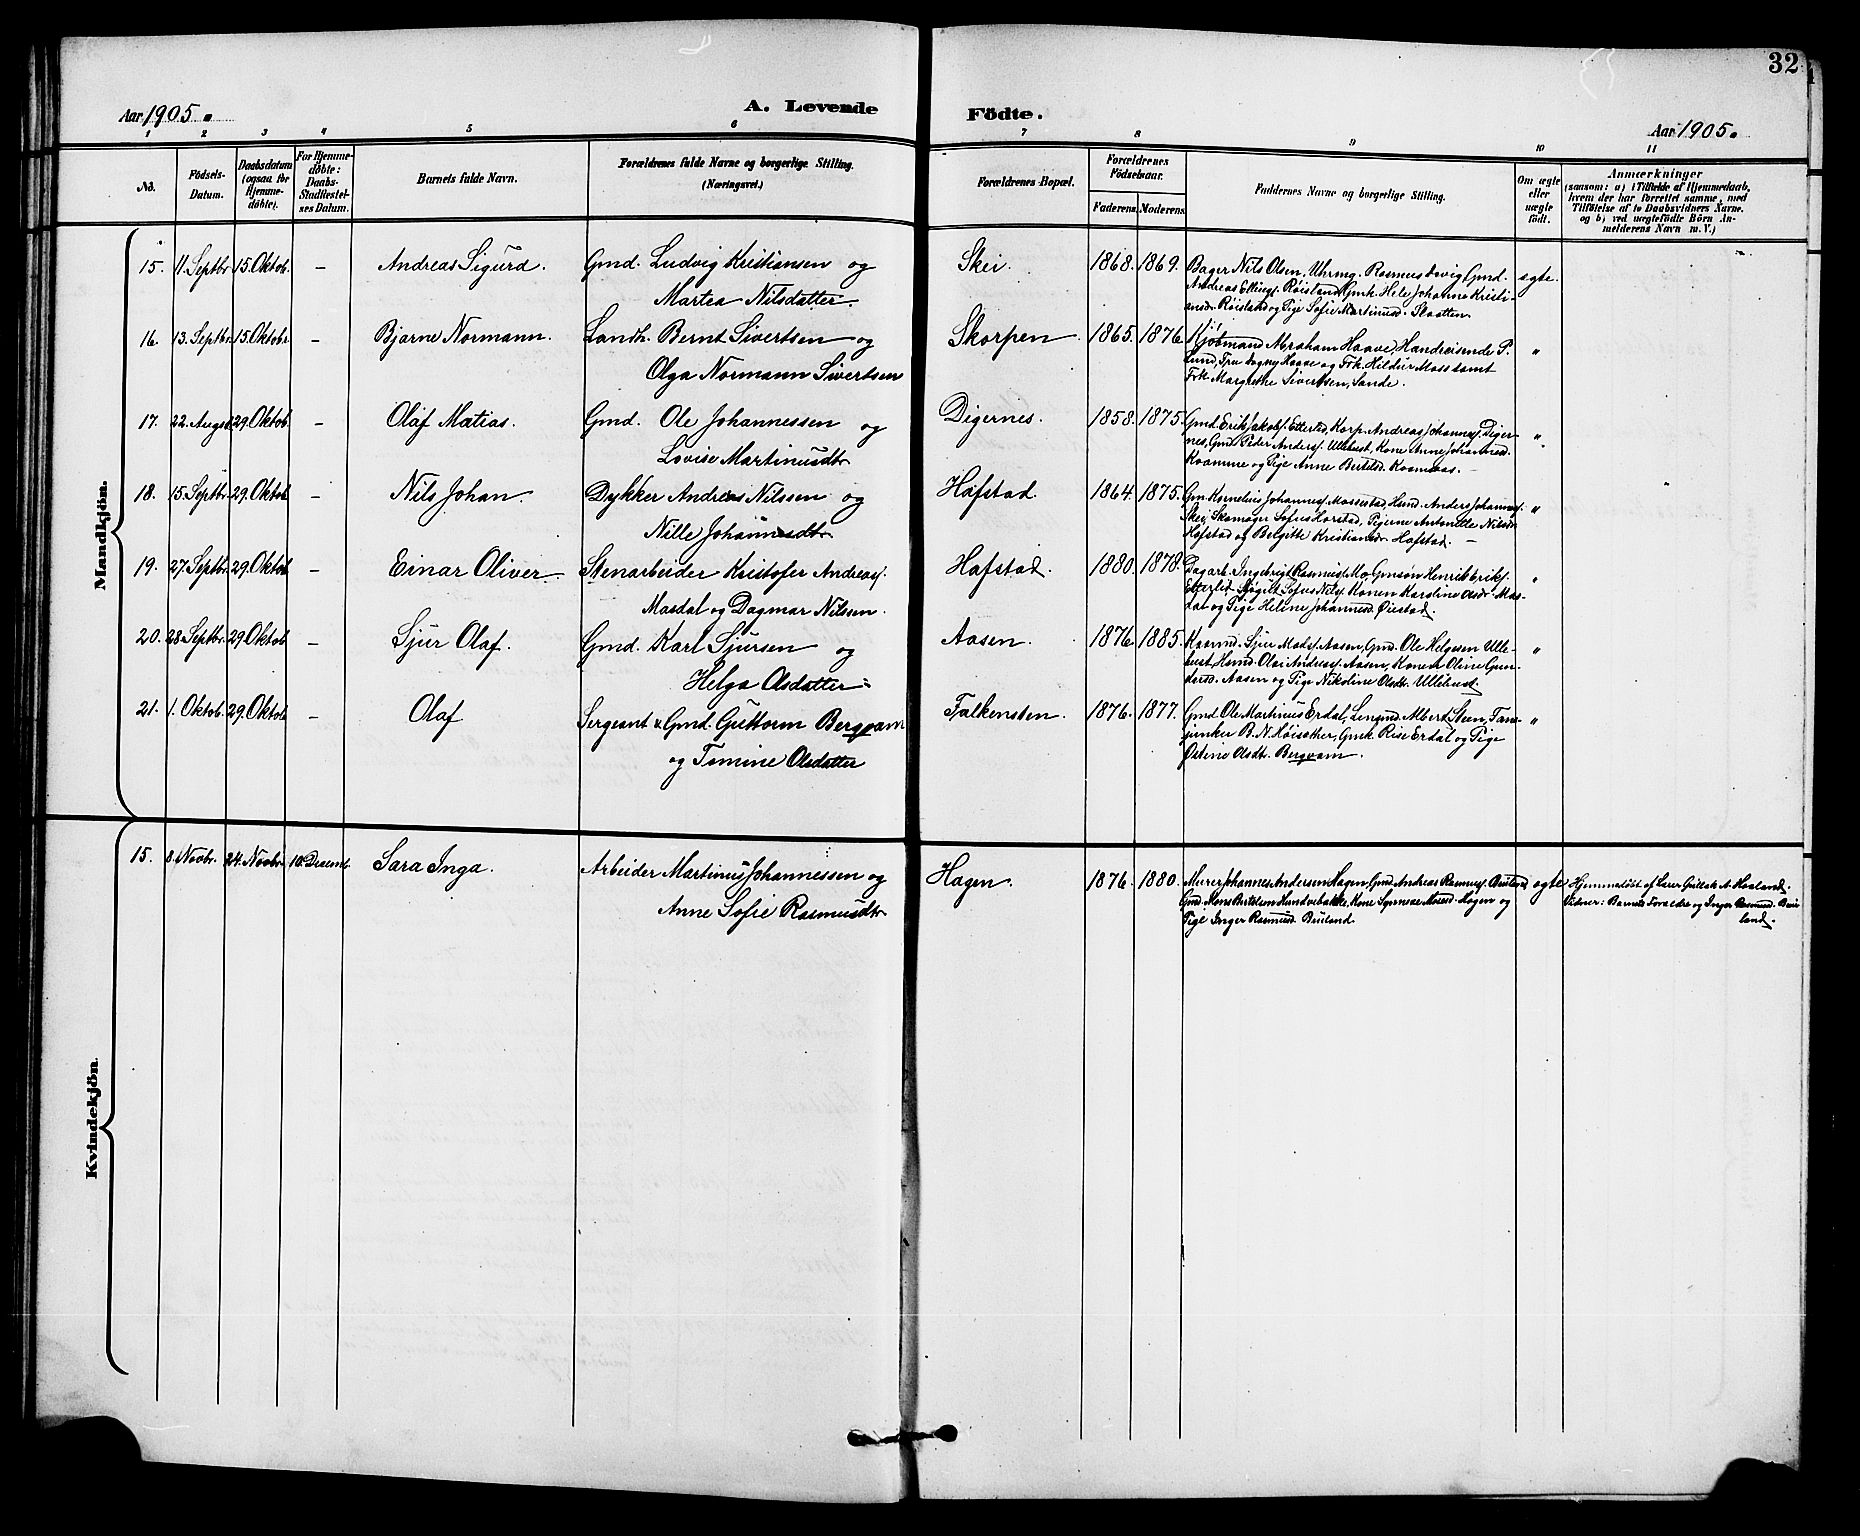 32
Aar 1905.
A. Levende
Födte.
Aar 1905.
1 2 3 4 5 6 7 8 9 10 11
No.
Födsels-
Datum.
Daabsdatum
(ogsaa for
Hjemme-
döbte).
For Hjemme-
döbte:
Daabs-
Stadfæstel-
ses Datum.
Barnets fulde Navn.
Forældrenes fulde Navne og borgerlige Stilling.
(Næringsvei.)
Forældrenes Bopæl.
Forældrenes
Födselsaar.
Faderens. Moderens.
Faddernes Navne og borgerlige Stilling.
Om ægte
eller
uægte
födt.
Anmærkninger
(saasom: a) i Tilfælde af Hjemmedaab,
hvem der har forrettet samme, med
Tilföielse af to Daabsvidners Navne.
og b) ved uægtefödte Börn An-
melderens Navn m. V.)
Mandkjön.
15. 11. Septbr. 15. Oktob. – Andreas Sigurd. Gmd. Ludvig Kristiansen og
Martea Nilsdatter.
Skei. 1868. 1869.
Bager Nils Olsen, Uhrmg. Rasmus Gmd.
Andreas Ellings. Röisland, Gmk. Hele Johanne Kristi-
ansd. Röisland og Pige Sofie Martinusd. Skaatten.
ægte.
16. 13. Septbr. 15. Oktobr. – Bjarne Normann. Landh. Bernt Sivertsen og
Olga Normann Sivertsen
Skorpen 1865. 1876.
Kjöbmand Abraham Haave, Handreisende P.
Lund, Fru Dagny Haave og Frk. Hildur Moss samt
Frk. Margrethe Sivertsen, Sande.
"
17. 22. August 29. Oktob. – Olaf Matias. Gmd. Ole Johannessen og
Lovise Martinusdtr
Digernes. 1858. 1875.
Gmd. Erik Jakobs. Etterlid, Korp. Andreas Johannes. Diger-
nes, Gmd. Peder Anders. Ullebust, Kone Anne Johannesd.
Kvamme og Pige Anne Bertelsd.
"
18. 15. Septbr. 29. Oktob. – Nils Johan. Dykker Andreas Nilssen og
Nille Johannesdtr
Hafstad. 1864. 1875.
Gm. Kornelius Johannes. Anders Johannes.
Skei, Skomager Sofus Horstad, Pigerne Antonette Nilsd.
Hafstad og Belgitte Kristiansd. Hafstad. –
"
19. 27. Septbr. 29. Oktob. – Einar Oliver. Stenarbeider Kristofer Andreas.
Masdal og Dagmar Nilsen.
Hafstad. 1880. 1878.
Dagarb. Ingebrigt Rasmus. Mo, Gmsön Henrik Eriks.
Etterlid, Sofus Nils. Konen Karoline Olsdr. Mas-
dal og Pige Helene Johannesd. Öiestad.
"
20. 28. Septbr. 29. Oktob. – Sjur Olaf. Gmd. Karl Sjursen og
Helga Olsdatter.
Aasen. 1876. 1885.
Kaarmd. Sjur Mads. Aasen, Gmd. Ole Helgesen Ulle-
bust, Hsmd. Olai Andreas. Aasen, Konen Oline Gun-
dersd. Aasen og Pige Nikoline Olsdt. Ullebust.
"
21. 1. Oktob. 29. Oktob. – Olaf Sergeant & Gmd. Guttorm Bergvam
og Tomine Olsdatter
Falkensten. 1876. 1877.
Gmd. Ole Martinus Erdal, Lensmd. Albert Steen, Fan-
junker B. N. Höisæther, Gmk. Rise Erdal og Pige
Östine Olsdt. Bergvam.
"
Kvindekjön.
15. 8. Novbr. 24. Novbr. 10. Decembr. Sara Inga. Arbeider Martinus Johannessen og
Anne Sofie Rasmusdtr
Hagen. 1876. 1880.
Murer Johannes Andersen Hagen, Gmd. Andreas Rasmus. Bruland
Gmd. Mons Bertelsen Hundvebakke, Kone Synneve Mosesd. Hagen og
Pige Inger Rasmusd. Bruland.
ægte
Hjemmedöbt af Lærer Gullak A. Haaland.
Vidner: Barnets Forældre og Inger Rasmusd. Bru-
land.